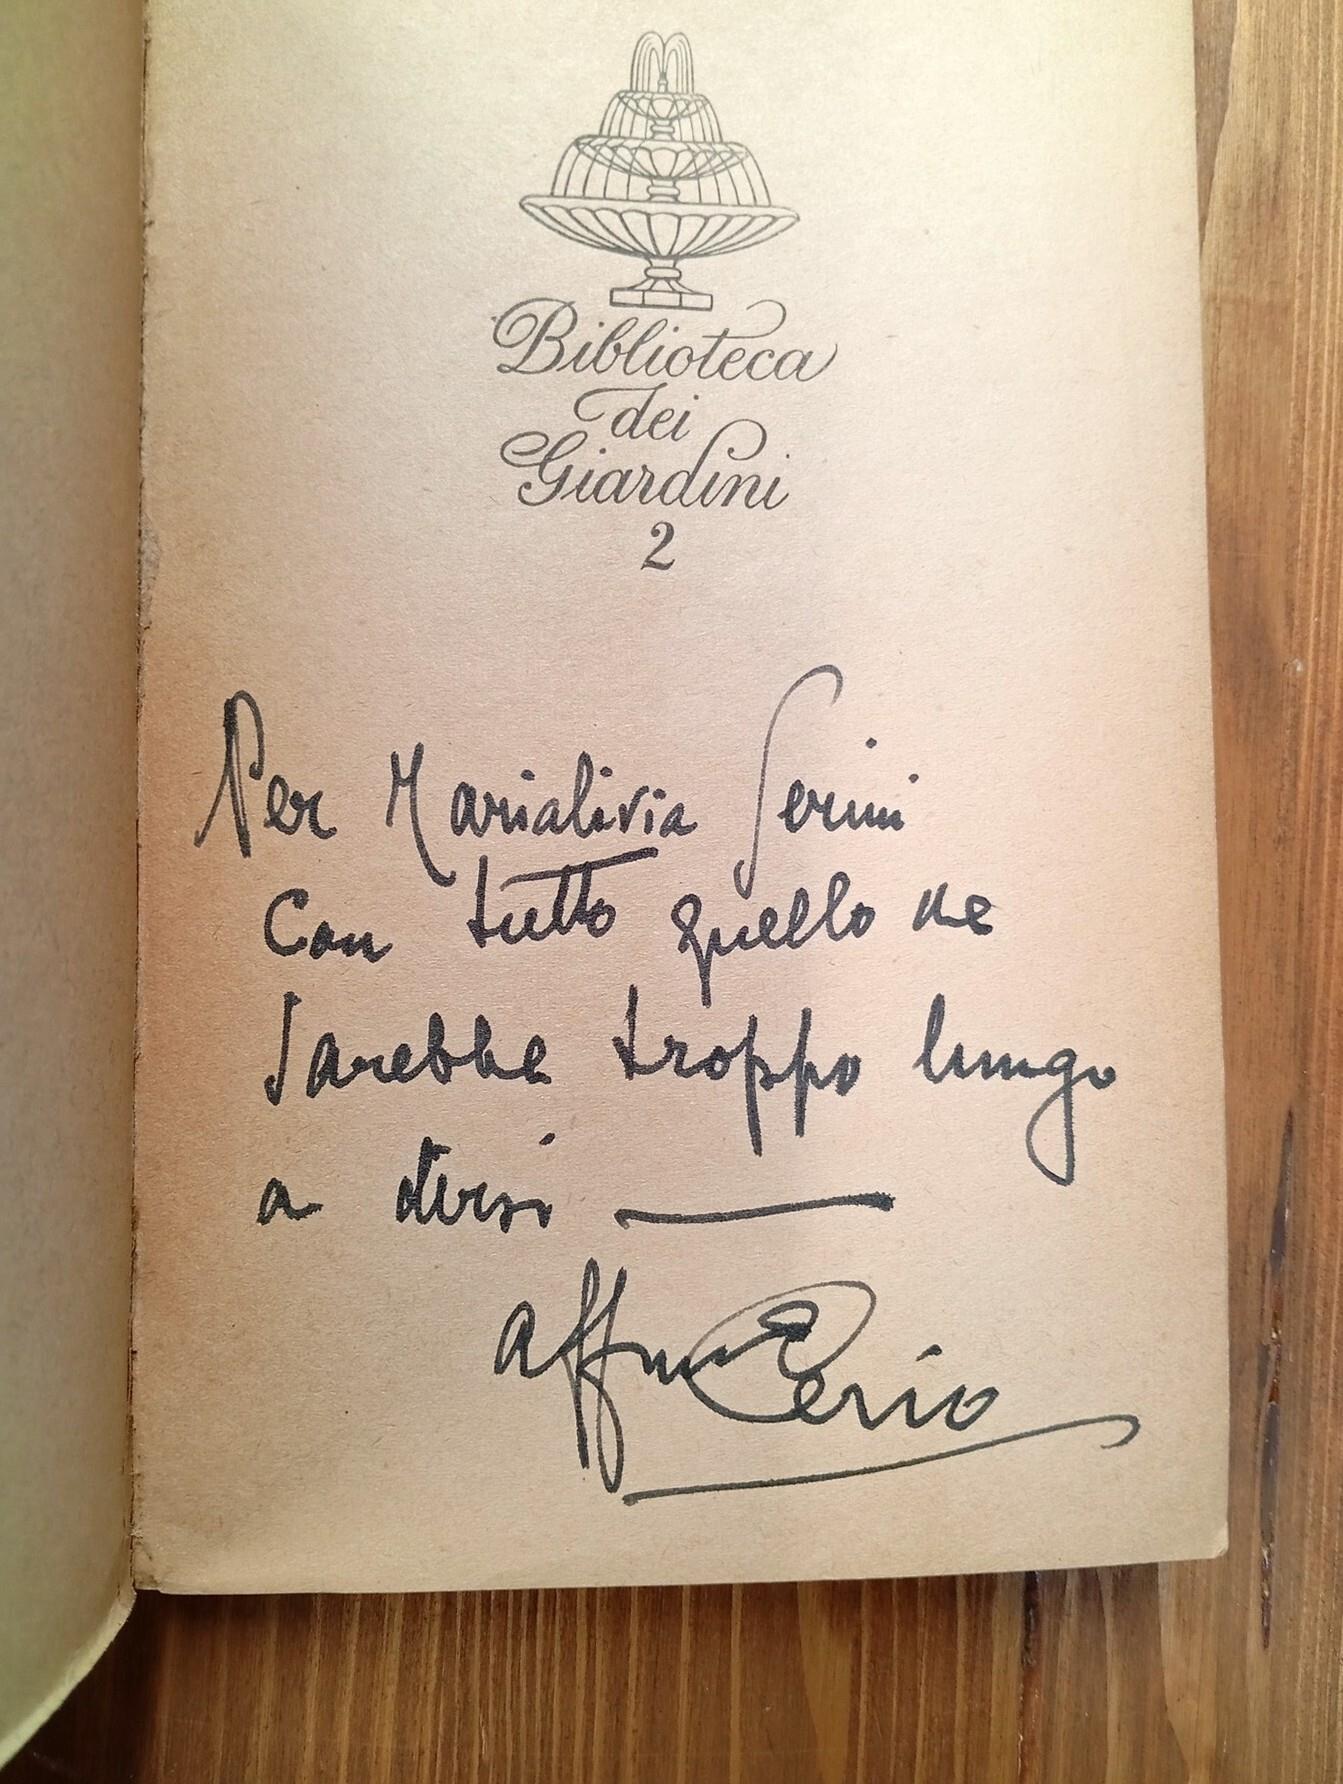 Biblioteca
dei
Giardini
2
Per Marialivia Serini
Con tutto quello che
sarebbe troppo lungo
a dirsi —
Cerio